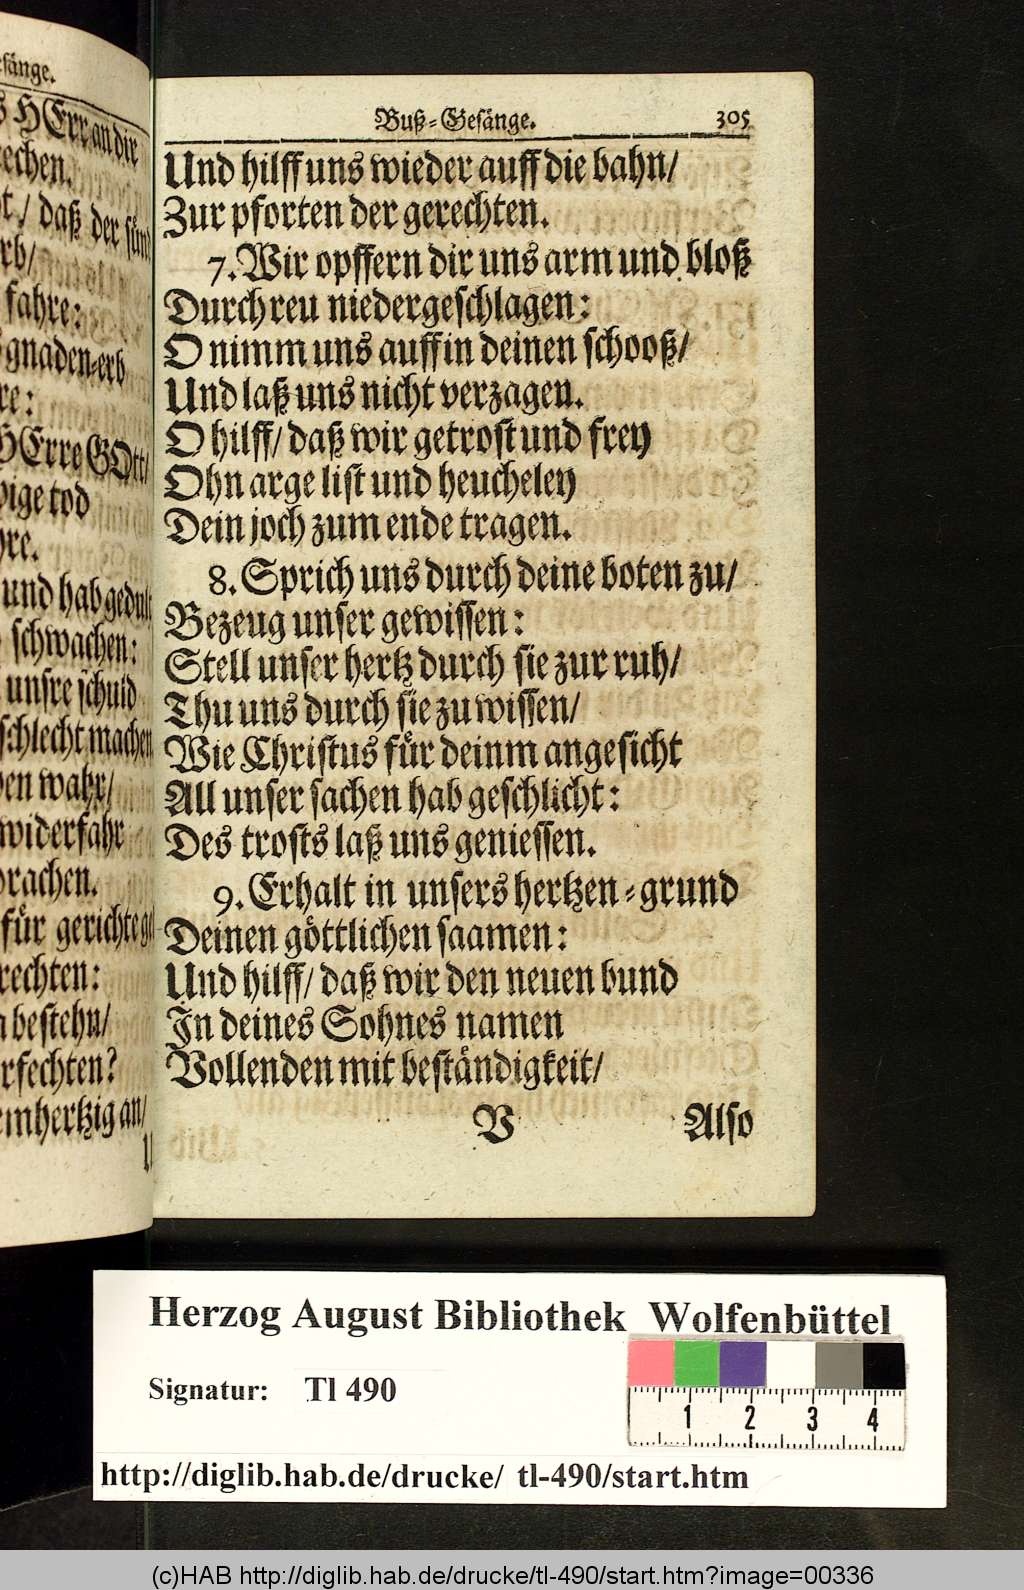 sänge.
HErr an dir
rechen.
daß der
fahre:
gnaden-erb
re:
HErre GOtt/
tod
re.
und hab gedult
schwachen:
unsre schuld
schlecht machen
wahr/
widerfahr
für gerichte
rechten:
bestehn/
an/
Buß-Gesänge. 305
Und hilff uns wieder auff die bahn/
Zur pforten der gerechten.
7. Wir opffern dir uns arm und bloß
Durch reu niedergeschlagen:
O nimm uns auff in deinen schooß/
Und laß uns nicht verzagen.
O hilff/ daß wir getrost und frey
Ohn arge list und heucheley
Dein joch zum ende tragen.
8. Sprich uns durch deine boten zu/
Bezeug unser gewissen:
Stell unser hertz durch sie zur ruh/
Thu uns durch sie zu wissen/
Wie Christus für deinm angesicht
All unser sachen hab geschlicht:
Des trosts laß uns geniessen.
9. Erhalt in unsers hertzen-grund
Deinen göttlichen saamen:
Und hilff/ daß wir den neuen bund
In deines Sohnes namen
Vollenden mit beständigkeit/
V Also
Herzog August Bibliothek Wolfenbüttel
Signatur: Tl 490
1 2 3 4
http://diglib.hab.de/drucke/ tl-490/start.htm
(c)HAB http://diglib.hab.de/drucke/tl-490/start.htm?image=00336